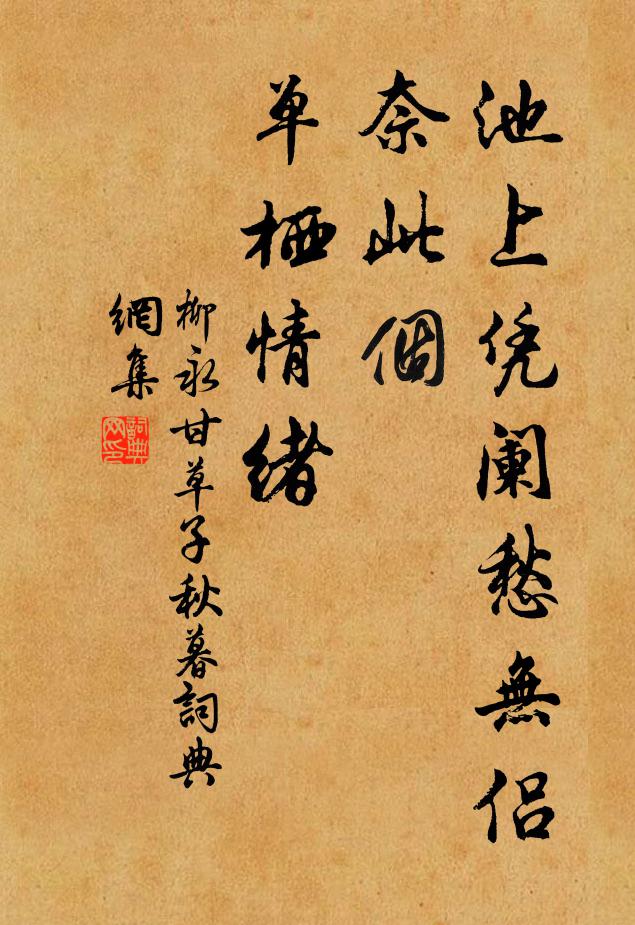 池上凭阑愁無侣
奈此個
单栖情緒
柳永甘草子秋暮詞典
網集
詞典
网印